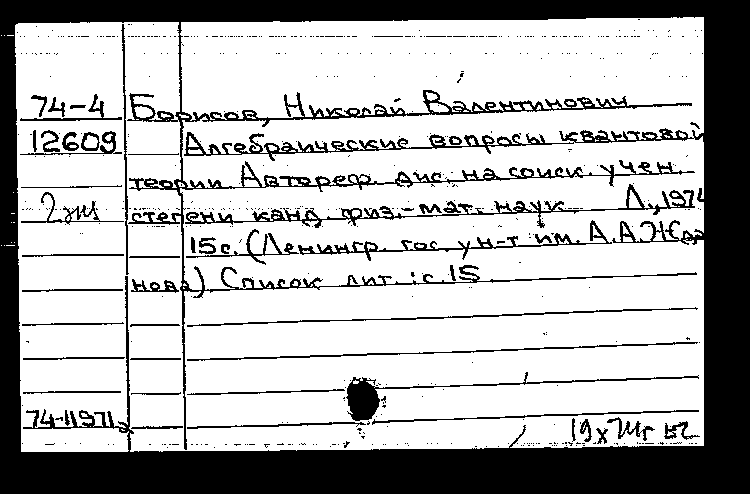 74-4 Борисов, Николай Валентинович.
12609 Алгебраические вопросы квантовой
теории. Автореф. дис. на соиск. учен.
2 экз степени канд. физ.-мат. наук. Л., 1974
15с. (Ленингр. гос. ун-т им. А.А. Жда
нова) Список лит.: с.15
74-11971
19 х 74г